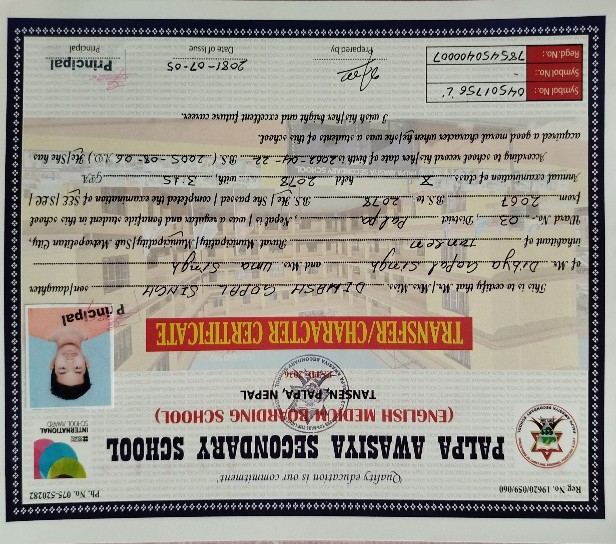 Reg. No. 19620/059/060
Ph. No. 075-520282
'Quality education is our commitment'
PALPA AWASIYA SECONDARY SCHOOL
(ENGLISH MEDIUM BOARDING SCHOOL)
TANSEN, PALPA, NEPAL
ESTD. 2036
INTERNATIONAL
SCHOOL AWARD
TRANSFER/CHARACTER CERTIFICATE
Principal
This is to certify that, Mr./Mrs./Miss. DIWASH GOPAL SINGH son/daughter
of Mr. Dibya Gopal Singh and Mrs. Uma Singh
inhabitant of Tansen Rural Municipality/Municipality/Sub Metropolitan City,
Ward No.- 03, District Palpa, Nepal
from 2067 B.S. to 2078 He/She passed / completed the examination of SEE
Annual examination of class X held 2078 with, 3.15 GPA
According to school record his/her date of birth is B.S. (2005-08-06 A.D.) He/She has
acquired a good moral character when he/she was a students of this school.
I wish his/her bright and excellent future career.
Symbol No.: 04501756 'L'
Symbol No.: -
Regd.No.: 785450400007
Prepared by
2081-07-05
Date of Issue
Principal
Principal